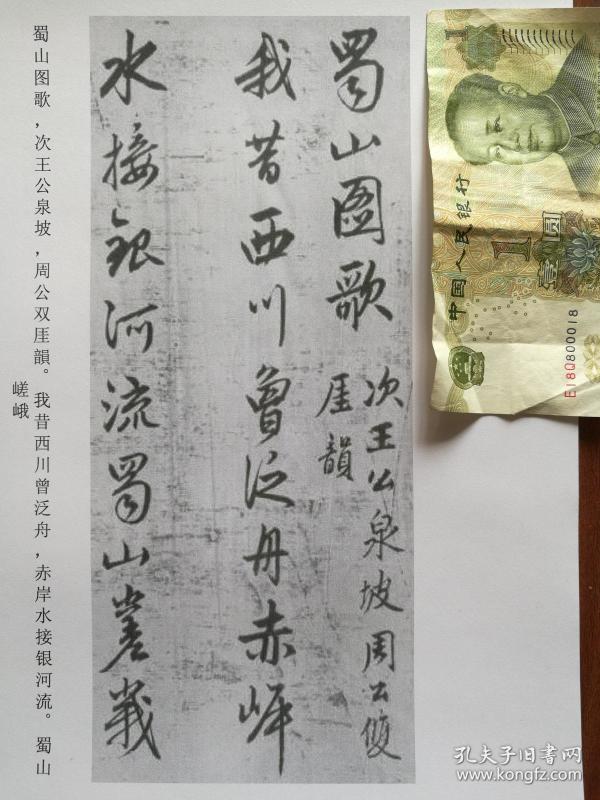 蜀山图歌
次王公泉坡周公雙
厓韻
我昔西川曾泛舟赤岸
水接銀河流蜀山嵳峩
蜀山图歌，次王公泉坡，周公双厓韻。我昔西川曾泛舟，赤岸水接银河流。蜀山
嵯峨
中国人民银行
1
壹圆
1
E18Q800018
孔夫子旧书网
www.kongfz.com